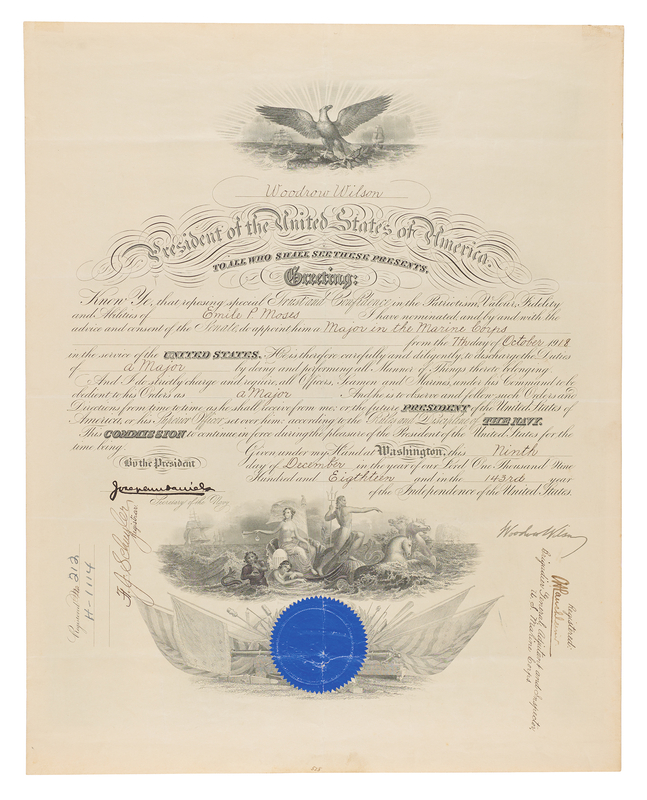 Woodrow Wilson
President of the United States of America.
TO ALL WHO SHALL SEE THESE PRESENTS,
Greeting:
Know Ye, that reposing special Trust and Confidence in the Patriotism, Valour, Fidelity
and Abilities of Emile P Moses I have nominated, and by and with the
advice and consent of the Senate, do appoint him a Major in the Marine Corps
from the 7th day of October 1918
in the service of the UNITED STATES. He is therefore carefully and diligently, to discharge the Duties
of a Major by doing and performing all Manner of Things thereto belonging.
And I do strictly charge and require, all Officers, Seamen and Marines, under his Command to be
obedient to his Orders as a Major And he is to observe and follow such Orders and
Directions from time to time, as he shall receive from me, or the future PRESIDENT of the United States of
America, or his Superior Officer set over him, according to the Rules and Discipline of THE NAVY.
This COMMISSION to continue in force during the pleasure of the President of the United States for the
time being.
Given under my Hand at Washington, this Ninth
By the President
day of December in the year of our Lord One Thousand Nine
Hundred and Eighteen and in the 143rd year
of the Independence of the United States.
Josephus Daniels
Secretary of the Navy
Woodrow Wilson
Registrar
Registered No 212
H-1114
Registered
Brigadier General, Adjutant and Inspector
U. S. Marine Corps